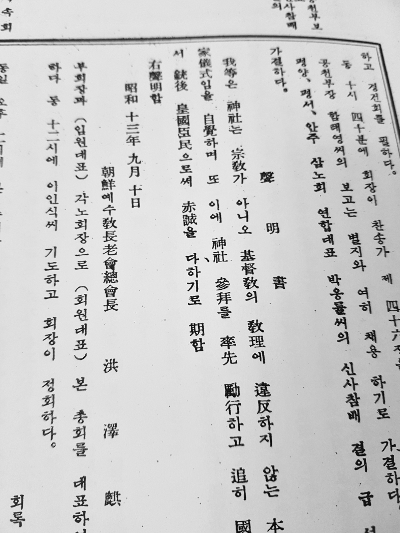 하고 경건회를 필하다.
동 十시 四十분에 회장이 찬송가 제 四十六장을
공천부장 함태영씨의 보고는 별지와 여히 채용 하기로 가결하다.
평양、평서、안주 삼노회 연합대표 박응률씨의 신사참배 결의 급
가결하다。
聲明書
我等은 神社는 宗敎가 아니오 基督敎의 敎理에 違反하지 않는 本
家儀式임을 自覺하며 또 이에 神社 參拜를 率先 勵行하고 追히 國
서 銃後 皇國臣民으로써 赤誠을 다하기로 期함
右聲明함
昭和 十三年 九月 十日
朝鮮예수敎長老會總會長 洪澤麒
부회장과 (임원대표) 각노회장으로 (회원대표) 본 총회를 대표하
하다 동 十二시에 이인식씨 기도하고 회장이 정회하다。
회록